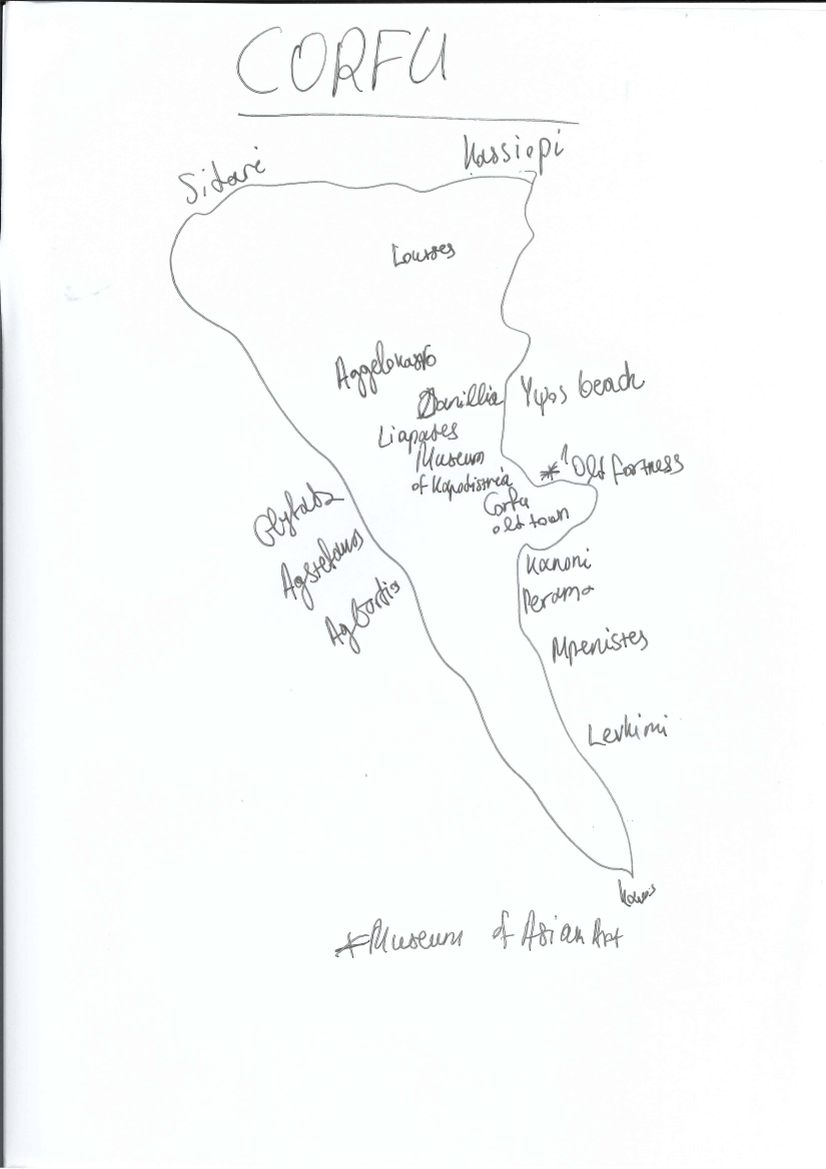 CORFU
Kassiopi
Sidari
Lourses
Aggelokastro
Danillia
Ypsos beach
Liapades
Museum
of Kapodistria
*1 Old fortress
Corfu
old town
Glyfada
Agstefanos
Ag Gordis
Kanoni
Perama
Mpenistes
Levkimi
Kavos
*Museum of Asian Art